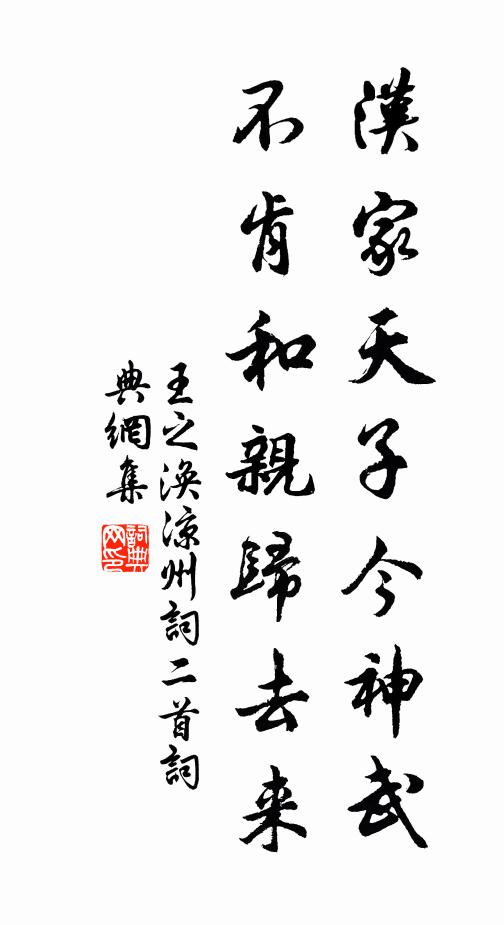 漢家天子今神武
不肯和親歸去来
王之渙涼州詞二首詞
典網集
詞典
网印